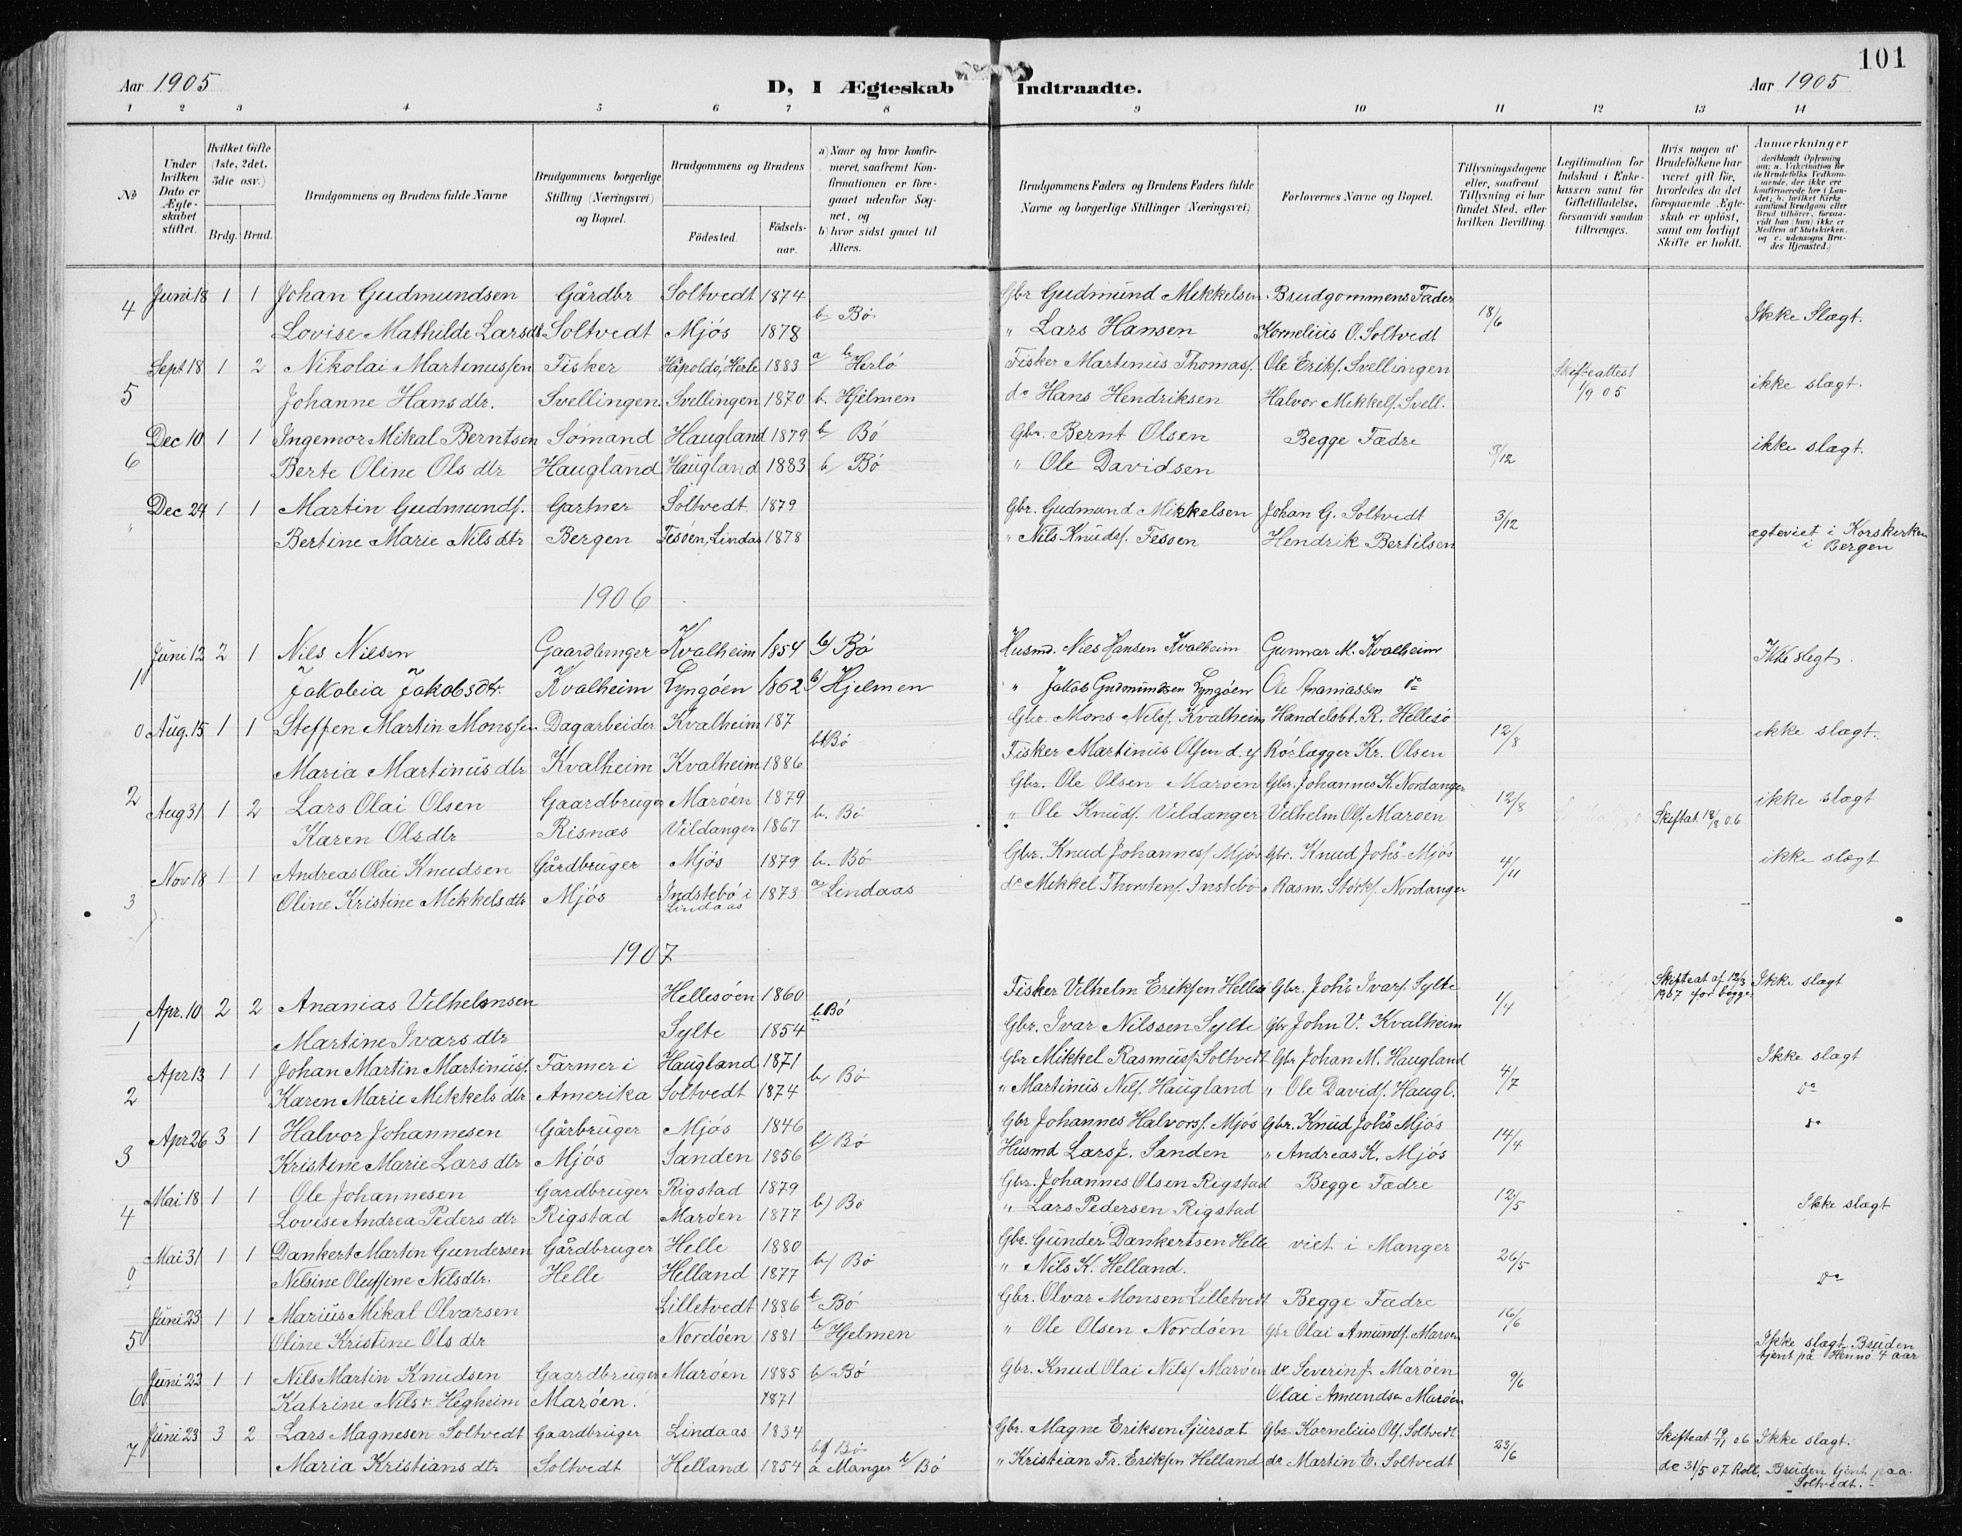 101
Aar 1905 D, I Ægteskab Indtraadte. Aar 1905
1 2 3 4 5 6 7 8 9 10 11 12 13 14
No
Under hvilken Dato er Ægteskabet stiftet.
Hvilket Gifte (1ste, 2det, 3die osv.)
Brdg. Brud.
Brudgommens og Brudens fulde Navne
Brudgommens borgerlige Stilling (Næringsvei) og Bopæl.
Brudgommens og Brudens
Fødested. Fødselsaar.
a) Naar og hvor konfirmeret, saafremt Konfirmationen er foregaaet udenfor Sognet, og
b) hvor sidst gaaet til Alters.
Brudgommens Faders og Brudens Faders fulde Navne og borgerlige Stillinger (Næringsvei)
Forlovernes Navne og Bopæl.
Tillysningsdagene eller, saafremt Tillysning ei har fundet Sted, efter hvilken Bevilling.
Legitimation for Indskud i Enkekassen samt for Giftetilladelse, forsaavidt saadan tiltrænges.
Hvis nogen af Brudefolkene har været gift før, hvorledes da det foregaaende Ægteskab er opløst, samt om lovligt Skifte er holdt.
Anmerkninger
4 Juni 18 1 1 Johan Gudmundsen Gårdbr Soltvedt 1874 b Bø Gbr Gudmund Mikkelsen Brudgommens Fader 18/6 Ikke Slægt.
Lovise Mathilde Larsdt Soltvedt Mjøs 1878 " Lars Hansen Kornelius O. Soltvedt
5 Sept 18 1 2 Nikolai Martinussen Fisker Håpoldø, Herlø 1883 a b Herlø Fisker Martinus Thomass. Ole Eriks. Svellingen Skifteattest 1/9 05 ikke slægt.
Johanne Hansdtr. Svellingen Svellingen 1870 b. Hjelmen do Hans Hendriksen Halvor Mikkels. Svell.
6 Dec 10 1 1 Ingemor Mikal Berntsen Sømand Haugland 1879 b Bø Gbr. Bernt Olsen Begge Fædre 3/12 ikke slægt.
Berte Oline Olsdtr Haugland Haugland 1883 b Bø " Ole Davidsen
" Dec 24 1 1 Martin Gudmunds. Gartner Soltvedt 1879 Gbr. Gudmund Mikkelsen Johan G. Soltvedt 3/12 ægteviet i Korskirken i Bergen
Bertine Marie Nilsdtr Bergen Fesøen, Lindås 1878 " Nils Knuds. Fesøen Hendrik Bertilsen
1906
1 Juni 12 2 1 Nils Nilsen Gaardbruger Kvalheim 1854 b/ Bø Husmd. Nils Hansen Kvalheim Gunnar M. Kvalheim Ikke slegt.
Jakobia Jakobsdtr. Kvalheim Lyngøen 1862 b/ Hjelmen " Jakob Gudmundsen Lyngøen Ole Ananiassen do
0 Aug. 15 1 1 Steffen Martin Monssen Dagarbeider Kvalheim 187 b Bø Gbr. Mons Nils. Kvalheim Handelsbt. R. Hellesø 12/8 ikke slægt.
Maria Martinusdtr Kvalheim Kvalheim 1886 Fisker Martinus Olsen d. ej Rørlægger Kr. Olsen
2 Aug 31 1 2 Lars Olai Olsen Gaardbruger Marøen 1879 b. Bø Gbr. Ole Olsen Marøen Gbr. Johannes K. Nordanger 12/8 Skiftat. 18/8 06 ikke slægt
Karen Olsdtr Risnæs Vildanger 1867 " Ole Knuds. Vildanger Vilhelm Ols. Marøen
3 Nov 18 1 1 Andreas Olai Knudsen Gårdbruger Mjøs 1879 b. Bø Gbr. Knud Johanness. Mjøs Gbr. Knud Johs Mjøs 4/11 ikke slægt
Oline Kristine Mikkelsdtr Mjøs Indstebø i Lindaas 1873 a Lindaas do Mikkel Thorstens. Instebø " Rasm. Størks. Nordanger
1907
1 Apr. 10 2 2 Ananias Vilhelmsen Hellesøen 1860 b Bø Fisker Vilhelm Eriksen Hellesø Gbr. Johs Ivars. Sylte 1/4 Skifteat af 12/3 1907 for begge Ikke slægt
Martine Ivarsdtr Sylte 1854 Gbr. Ivar Nilssen Sylte Gbr John V. Kvalheim
2 Apr 13 1 1 Johan Martin Martinus. Farmer i Haugland 1871 b/ Bø Gbr Mikkel Rasmuss. Soltvedt Gbr Johan M. Haugland 4/7 Ikke slægt
Karen Marie Mikkelsdtr Amerika Soltvedt 1874 " Martinus Nils. Haugland " Ole Davids. Haugl. do
3 Apr 26 3 1 Halvor Johannesen Gårbruger Mjøs 1846 b/ Bø Gbr Johannes Halvors. Mjøs Gbr. Knud Johs Mjøs 14/4 do
Kristine Marie Larsdtr Mjøs Sanden 1856 Husmd Lars J. Sanden " Andreas K. Mjøs
4 Mai 18 1 1 Ole Johannesen Gardbruger Rigstad 1879 b/ Bø Gbr. Johannes Olsen Rigstad Begge Fædre 12/5 Ikke slægt
Lovise Andrea Pedersdtr Rigstad Marøen 1877 " Lars Pedersen Rigstad
0 Mai 31 1 1 Dankert Martin Gundersen Gårdbruger Helle 1880 b/ Bø Gbr. Gunder Dankertsen Helle viet i Manger 26/5 do
Nilsine Oluffine Nilsdtr. Helle Helland 1877 " Nils K. Helland.
5 Juni 23 1 1 Marius Mikal Olvarsen Lilletvedt 1886 b Bø Gbr. Olvar Monsen Lilletvedt Begge Fædre 16/6
Oline Kristine Olsdtr Nordøen 1881 b/ Hjelmen " Ole Olsen Nordøen Gbr Olai Amunds. Marøen Ikke slægt Bruden tjent på Hennø 4 aar
6 Juni 23 1 1 Nils Martin Knudsen Gaardbruger Marøen 1885 b/ Bø Gbr. Knud Olai Nils. Marøen do Severin J. Marøen 9/6
Katrine Nilsr Hegheim Marøen. 1871 Olai Amundsn Marøen
7 Juni 23 3 2 Lars Magnesen Soltvedt Gaardbruger Lindaas 1834 b/ Bø Gbr. Magne Eriksen Sjursæt Gbr. Kornelius Ols. Soltvedt 23/6 Skifteat 19/1 06 Ikke slagt.
Maria Kristiansdtr Soltvedt Helland 1854 a Manger b/ Bø " Kristian Fr. Eriksen Helland do Martin E. Soltvedt do 31/5 07 Bruden tjent paa Soltvedt.